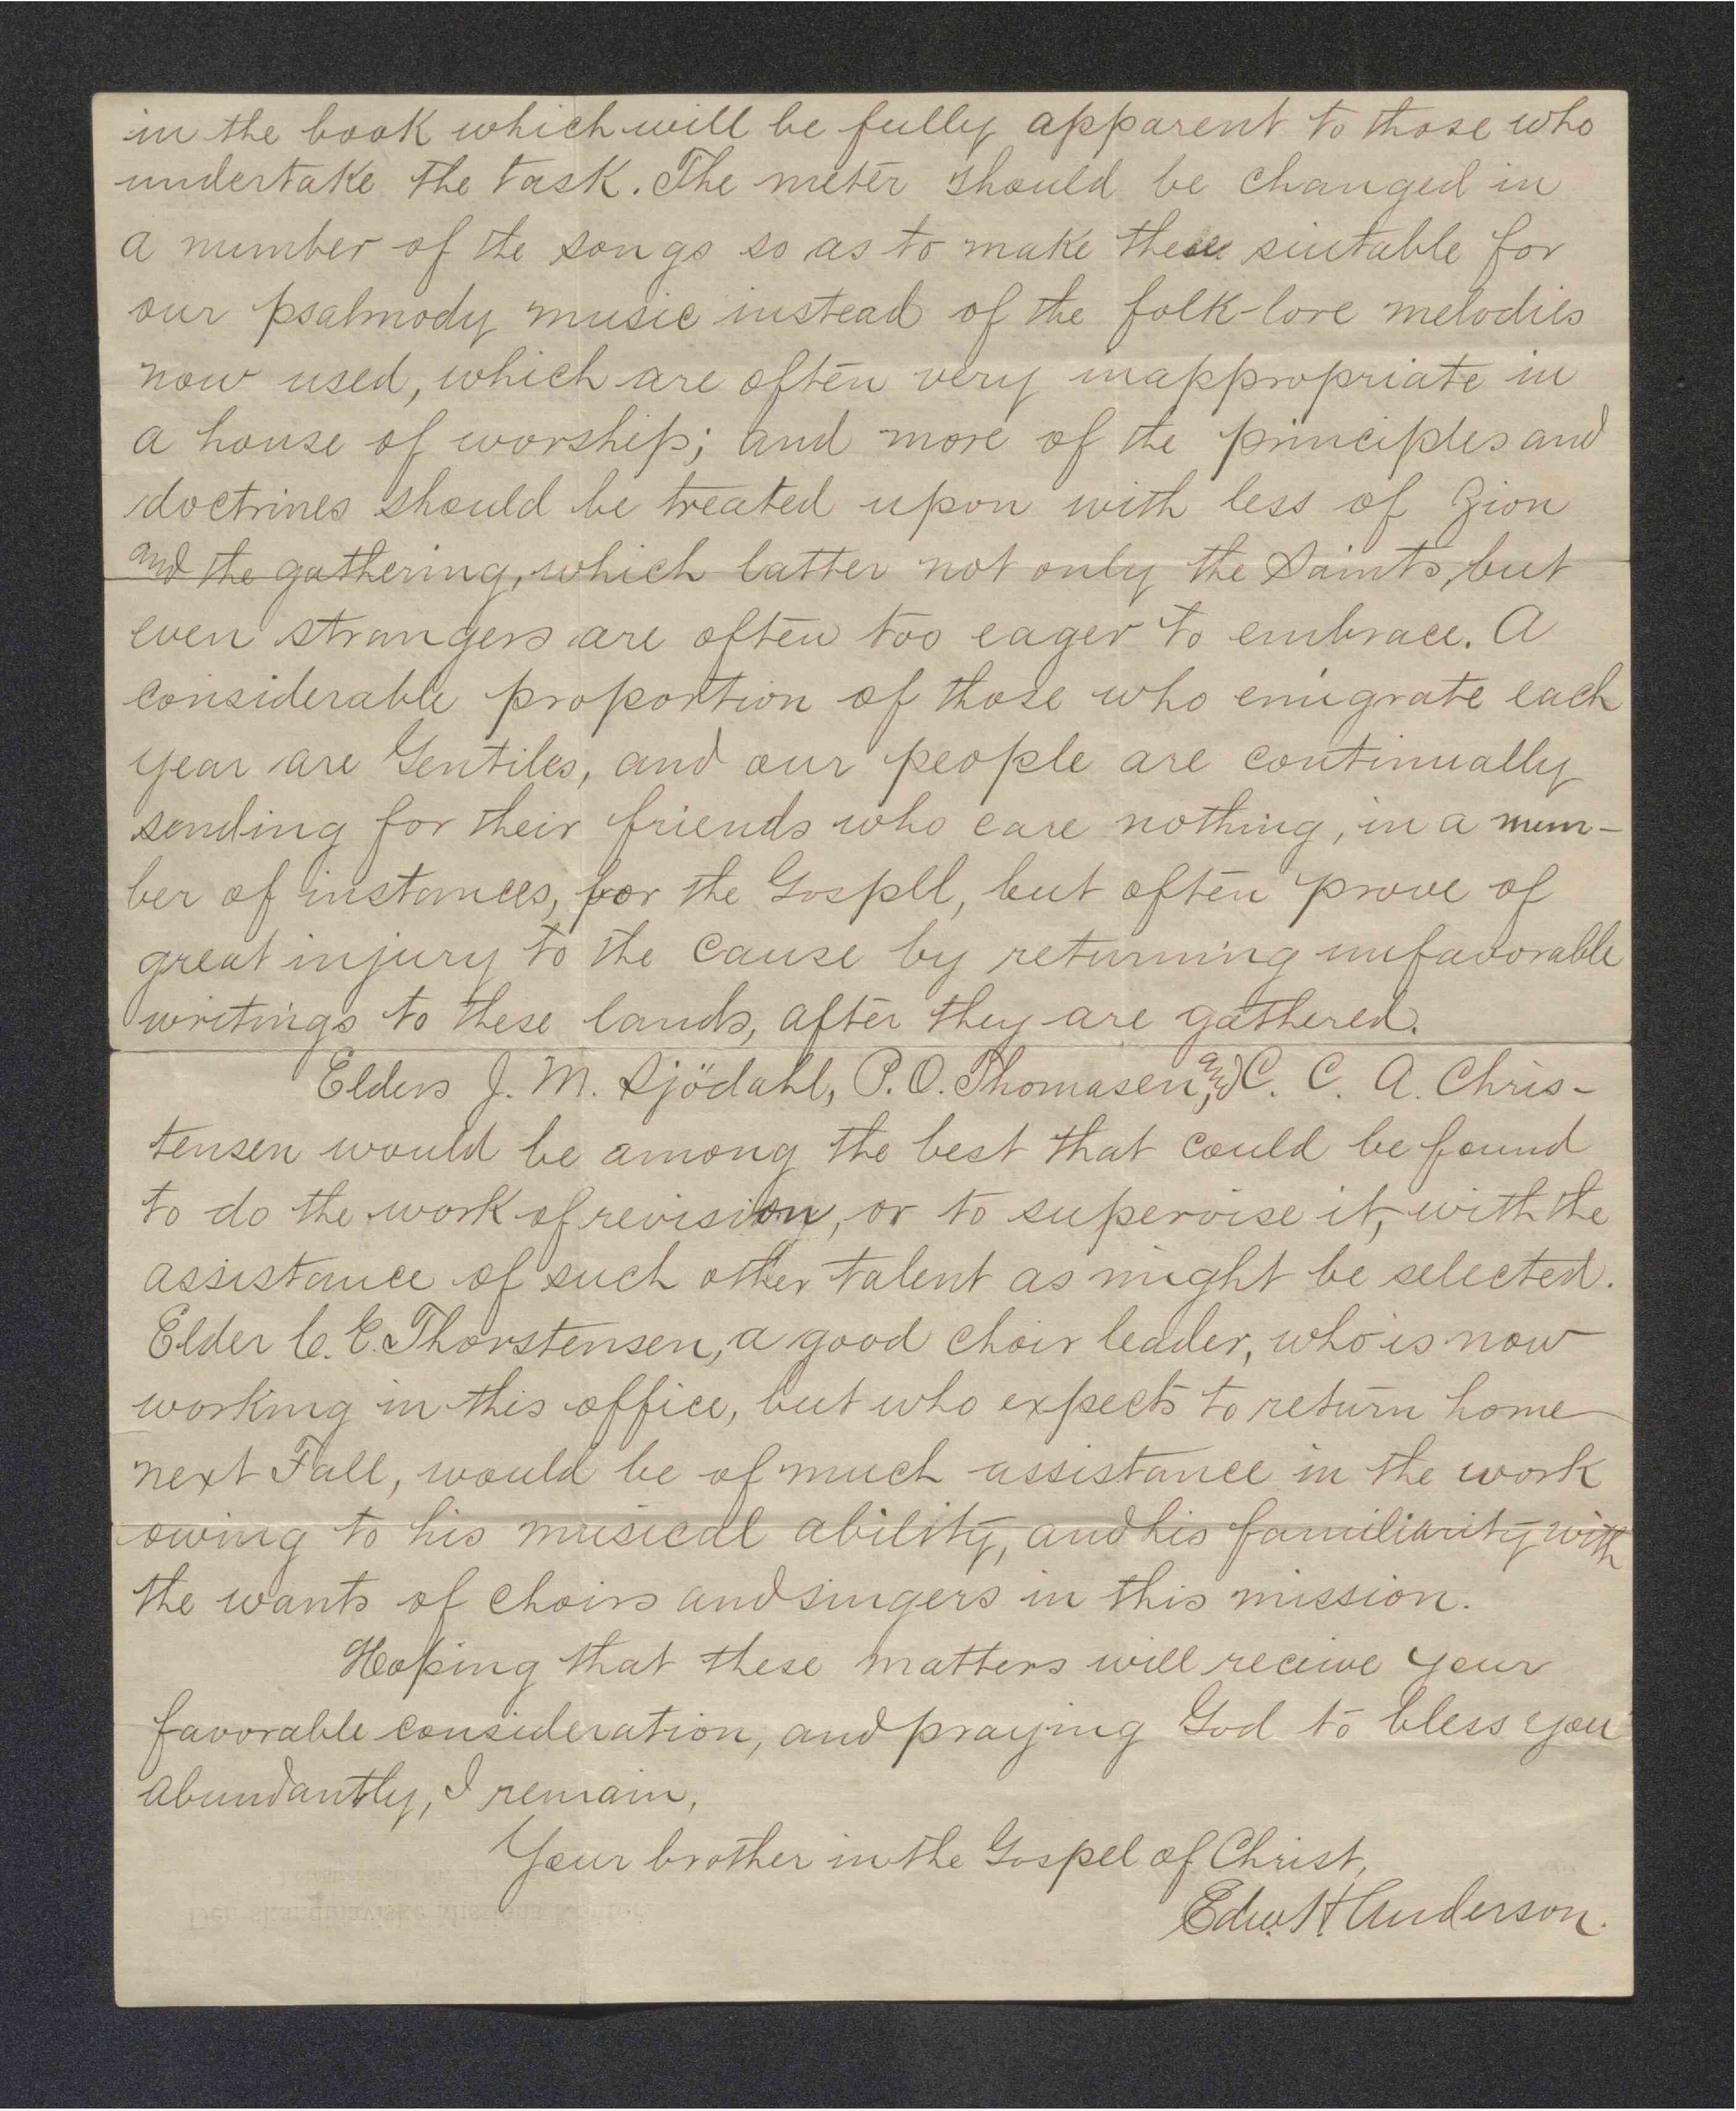 in the book which will be fully apparent to those who
undertake the task. The meter should be changed in
a number of the songs so as to make these suitable for
our psalmody music instead of the folk-lore melodies
now used, which are often very inappropriate in
a house of worship; and more of the principles and
doctrines should be treated upon with less of Zion
and the gathering, which latter not only the Saints, but
even strangers are often too eager to embrace. A
considerable proportion of those who emigrate each
year are Gentiles, and our people are continually
sending for their friends who care nothing, in a num-
ber of instances, for the Gospel, but often prove of
great injury to the cause by returning unfavorable
writings to these lands, after they are gathered.
Elders J. M. Sjödahl, P. O. Thomasen, and C. C. A. Chris-
tensen would be among the best that could be found
to do the work of revision, or to supervise it, with the
assistance of such other talent as might be selected.
Elder C. E. Thorstensen, a good choir leader, who is now
working in this office, but who expects to return home
next Fall, would be of much assistance in the work
owing to his musical ability, and his familiarity with
the wants of choirs and singers in this mission.
Hoping that these matters will receive your
favorable consideration, and praying God to bless you
abundantly, I remain,
Your brother in the Gospel of Christ,
Edw. H Anderson.
Den skandinaviske Missions Kontor